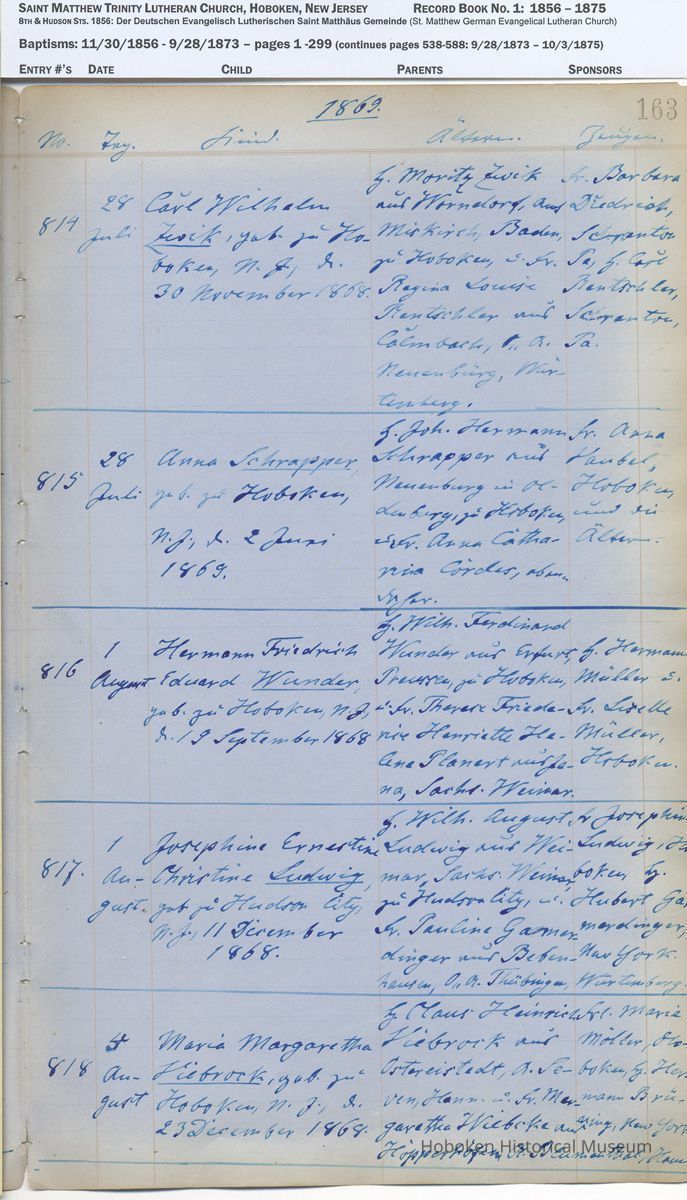 SAINT MATTHEW TRINITY LUTHERAN CHURCH, HOBOKEN, NEW JERSEY RECORD BOOK NO. 1: 1856 – 1875
8TH & HUDSON STS. 1856: Der Deutschen Evangelisch Lutherischen Saint Matthäus Gemeinde (St. Matthew German Evangelical Lutheran Church)
Baptisms: 11/30/1856 - 9/28/1873 – pages 1 -299 (continues pages 538-588: 9/28/1873 – 10/3/1875)
ENTRY #'S DATE CHILD PARENTS SPONSORS
1869. 163
No. Tag. Kind. Ältern. Zeugen.
814
28
Juli
Carl Wilhelm
Zwik, geb. zu Ho-
boken, N. J., d.
30 November 1868.
H. Moritz Zwik
aus Worndorf, Amt
Miskirch, Baden,
zu Hoboken, u. Fr.
Regina Louise
Rentschler aus
Calmbach, O. A.
Neuenbürg, Wür-
temberg.
Fr. Barbara
Diedrich,
Scranton
Pa., H. Carl
Rentschler,
Scranton,
Pa.
815
28
Juli
Anna Schrapper,
geb. zu Hoboken,
N. J., d. 2 Juni
1869.
H. Joh. Hermann
Schrapper aus
Neuenburg in Ol-
denburg, zu Hoboken,
u. Fr. Anna Catha-
rina Cördes, eben-
daher.
Fr. Anna
Haubel,
Hoboken,
und die
Ältern.
816
1
August
Hermann Friedrich
Eduard Wunder,
geb. zu Hoboken, N. J.,
d. 19 September 1868
H. Wilh. Ferdinand
Wunder aus Erfurt,
Preussen, zu Hoboken,
u. Fr. Therese Friede-
rike Henriette He-
lene Planert aus Je-
na, Sachs. Weimar.
H. Hermann
Müller u.
Fr. Liselle
Müller,
Hoboken.
817.
1
Au-
gust.
Josephine Ernestine
Christine Ludwig,
geb. zu Hudson City,
N. J., 11 December
1868.
H. Wilh. August
Ludwig aus Wei-
mar, Sachs. Weimar,
zu Hudson City, u.
Fr. Pauline Gamer-
dinger aus Beben-
hausen, O. A. Thübingen,
Josephine
Ludwig,
boken, H.
Hubert
merdinger,
New York
Würtenberg.
818
4
Au-
gust
Maria Margaretha
Viebrock, geb. zu
Hoboken, N. J., d.
23 December 1868.
H. Claus Heinrich
Viebrock aus
Ostereistedt, A. Ze-
ven, Hann. u. Fr. Mar-
garetha Wiebcke aus
Frl. Maria
Möller, Ho-
boken, H. Her-
mann Brü-
ning, New York
Hoboken Historical Museum